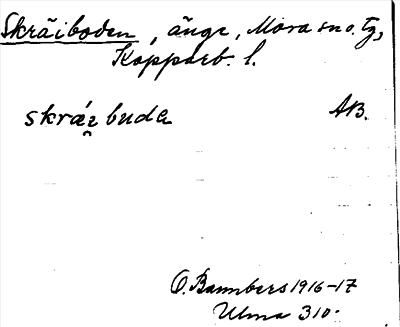 Skräiboden, änge, Mora sn o. tg,
Kopparb. l.
skrái̯buda AB.
O. Bannbers 1916-17
Ulma 310.